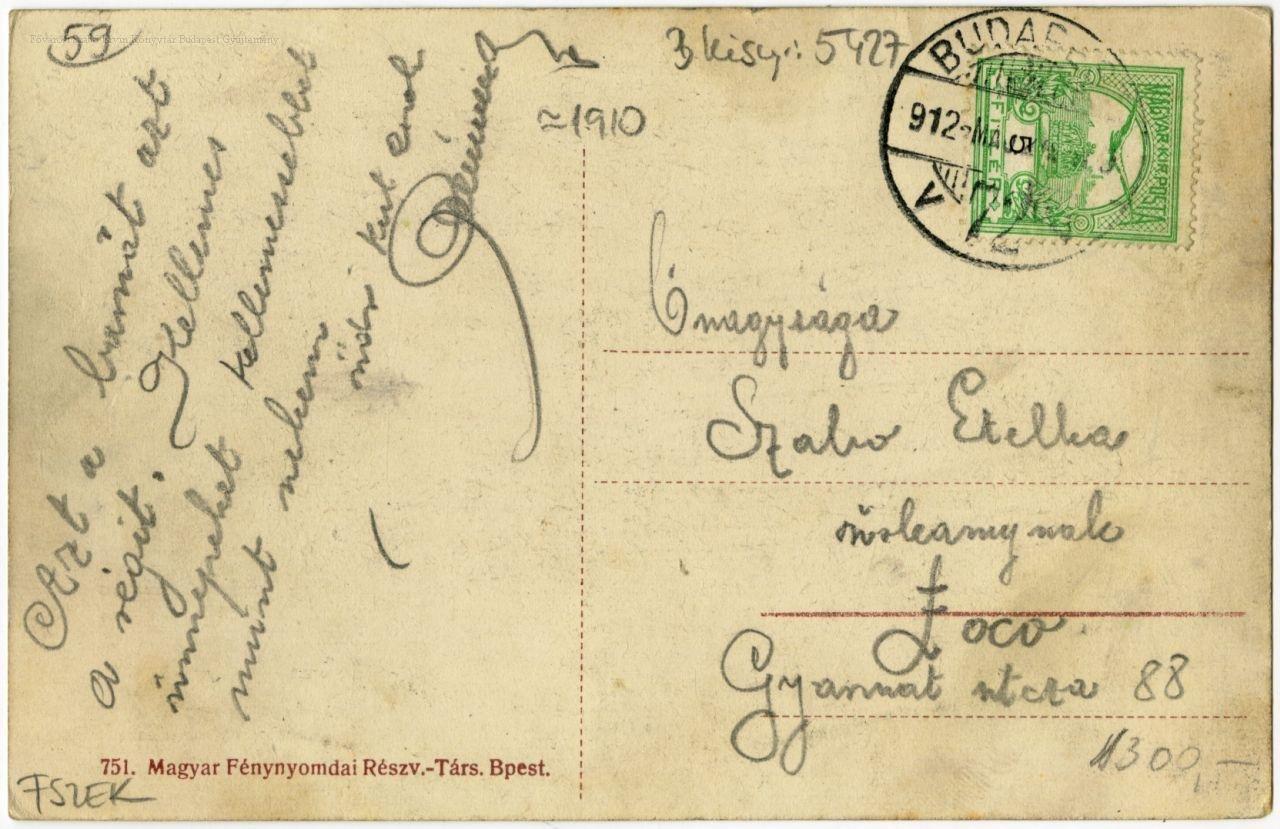 59
Fővárosi Szabó Ervin Könyvtár Budapest Gyűjtemény
B kisny: 5427
≈1910
BUDAPE
912 MÁJ
MAGYAR KIR. POSTA
5
FILLÉR
Azt a
azt
a végit. Kellemes
ünnepeket kellemesebbet
mint nekem
Őnagysága
Szabo Etelka
úrleanynak
Loco
Gyarmat utcza 88
1300,-
751. Magyar Fénynyomdai Részv.-Társ. Bpest.
FSZEK